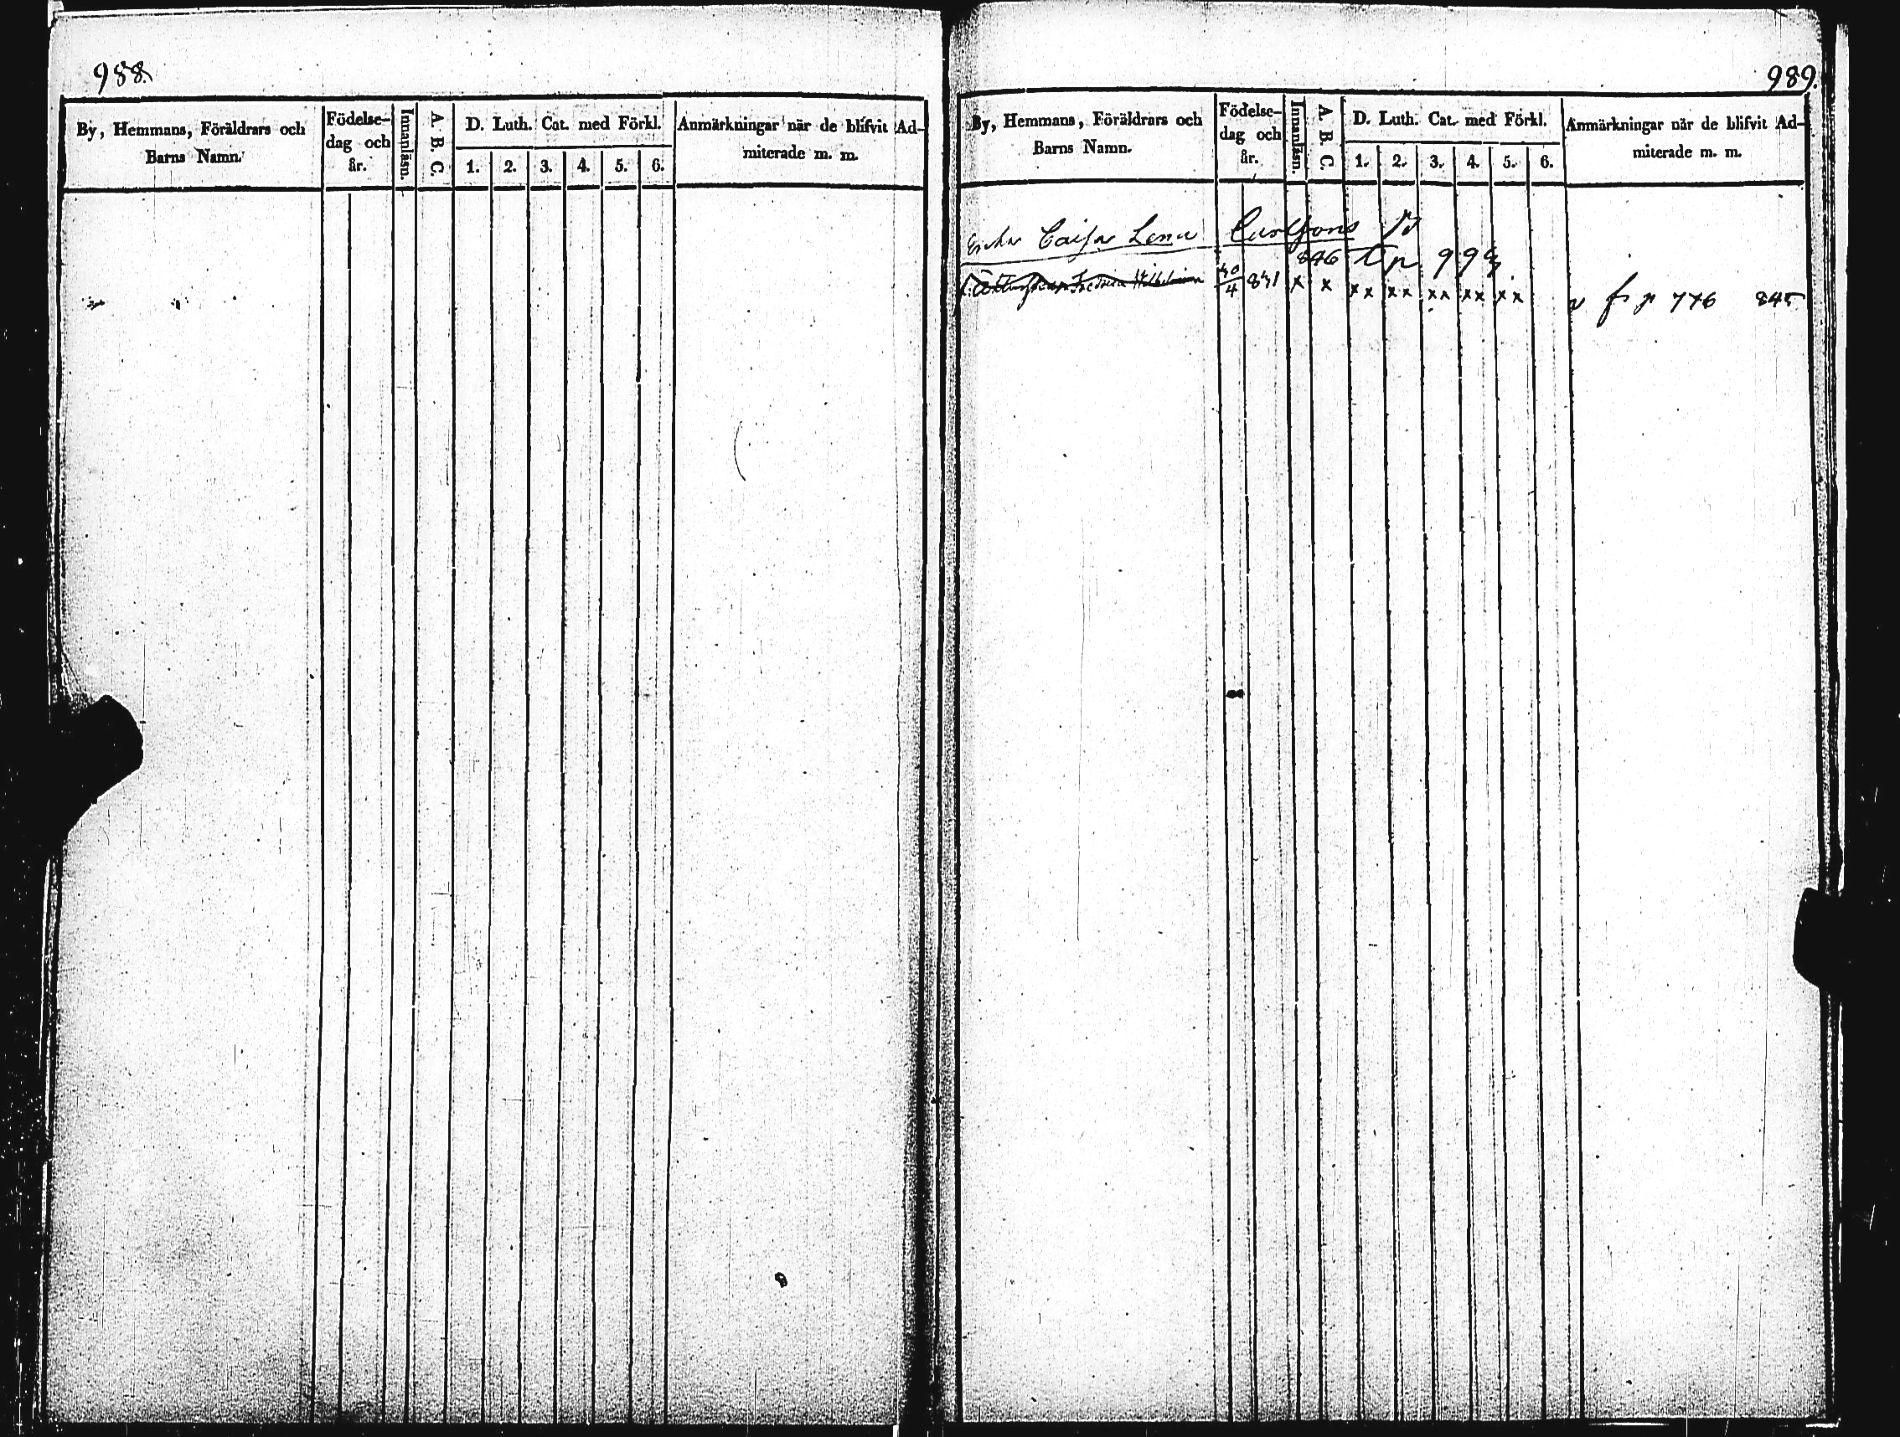 988.
By, Hemmans, Föräldrars och Barns Namn.
Födelse-dag och år.
Innanläsn.
A. B. C.
D. Luth. Cat. med Förkl.
1. 2. 3. 4. 5. 6.
Anmärkningar när de blifvit Ad-
miterade m. m.
989.
By, Hemmans, Föräldrars och
Barns Namn.
Födelse-
dag och
år.
Innanläsn.
A. B. C.
D. Luth. Cat. med Förkl.
1. 2. 3. 4. 5. 6.
Anmärkningar när de blifvit Ad-
miterade m. m.
Enkan Caisa Lena
846 t p
Fredrica Wilhelmina 841 x x x x x x x x x x x x f p 776 845